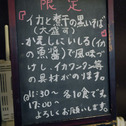 限定
『イカと煮干の黒いそば』
(大盛可)
が、足しにいしる(イカ
の魚醤)で風味づ
けし、イカワンタン等
の具材がのります。
@11:30〜 各10食です。
17:00〜
よろしくお願いします。